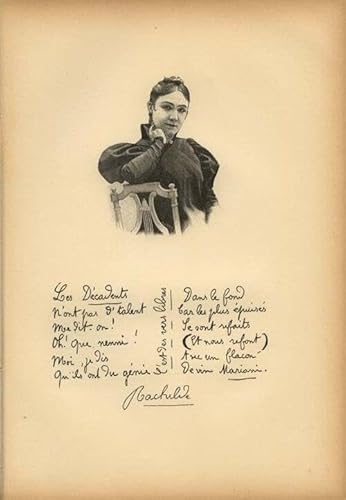 Les Décadents
N'ont pas d'talent
M'a dit-on!
Oh! que nenni!
Moi, je dis
Qu'ils ont du génie
c'est des vers libres
Dans le fond
Car les plus épuisés
Se sont refaits
(Et nous refont)
Avec un flacon
De vin Mariani.
Rachilde